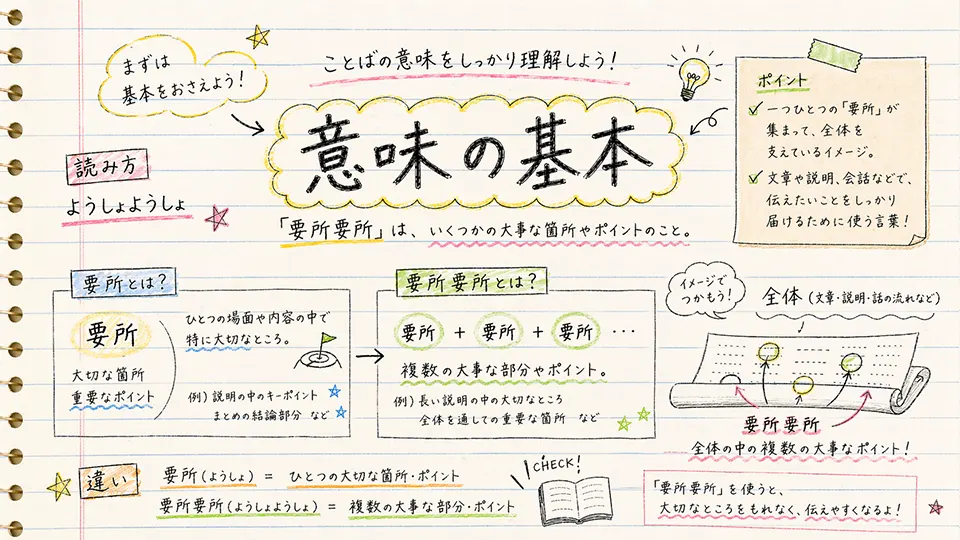 まずは
基本をおさえよう!
ことばの意味をしっかり理解しよう!
意味の基本
「要所要所」は、いくつかの大事な箇所やポイントのこと。
読み方
ようしょようしょ
ポイント
一つひとつの「要所」が
集まって、全体を
支えているイメージ。
文章や説明、会話などで、
伝えたいことをしっかり
届けるために使う言葉!
要所とは?
要所
大切な箇所
重要なポイント
ひとつの場面や内容の中で
特に大切なところ。
例) 説明の中のキーポイント
まとめの結論部分 など
要所要所とは?
要所 + 要所 + 要所 ・・・
複数の大事な部分やポイント。
例) 長い説明の中の大切なところ
全体を通しての重要な箇所 など
イメージで
つかもう!
全体 (文章・説明・話の流れなど)
要所要所
全体の中の複数の大事なポイント!
違い
要所(ようしょ) = ひとつの大切な箇所・ポイント
要所要所(ようしょようしょ) = 複数の大事な部分・ポイント
CHECK!
「要所要所」を使うと、
大切なところをもれなく、伝えやすくなるよ!